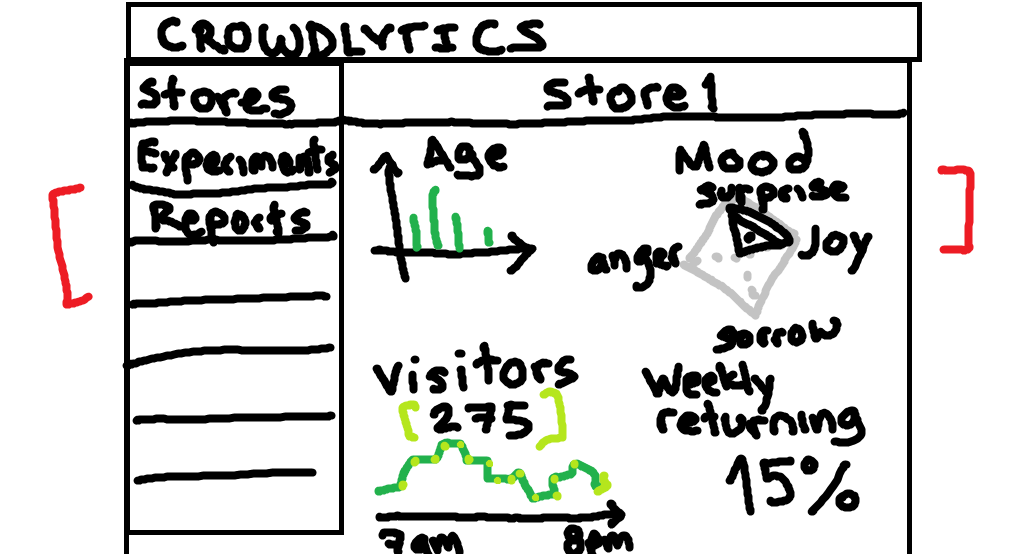 CROWDLYTICS
Stores
Experiments
Reports
Store 1
Age
Mood
surprise
anger
Joy
sorrow
Visitors
275
7am
8pm
Weekly
returning
15%